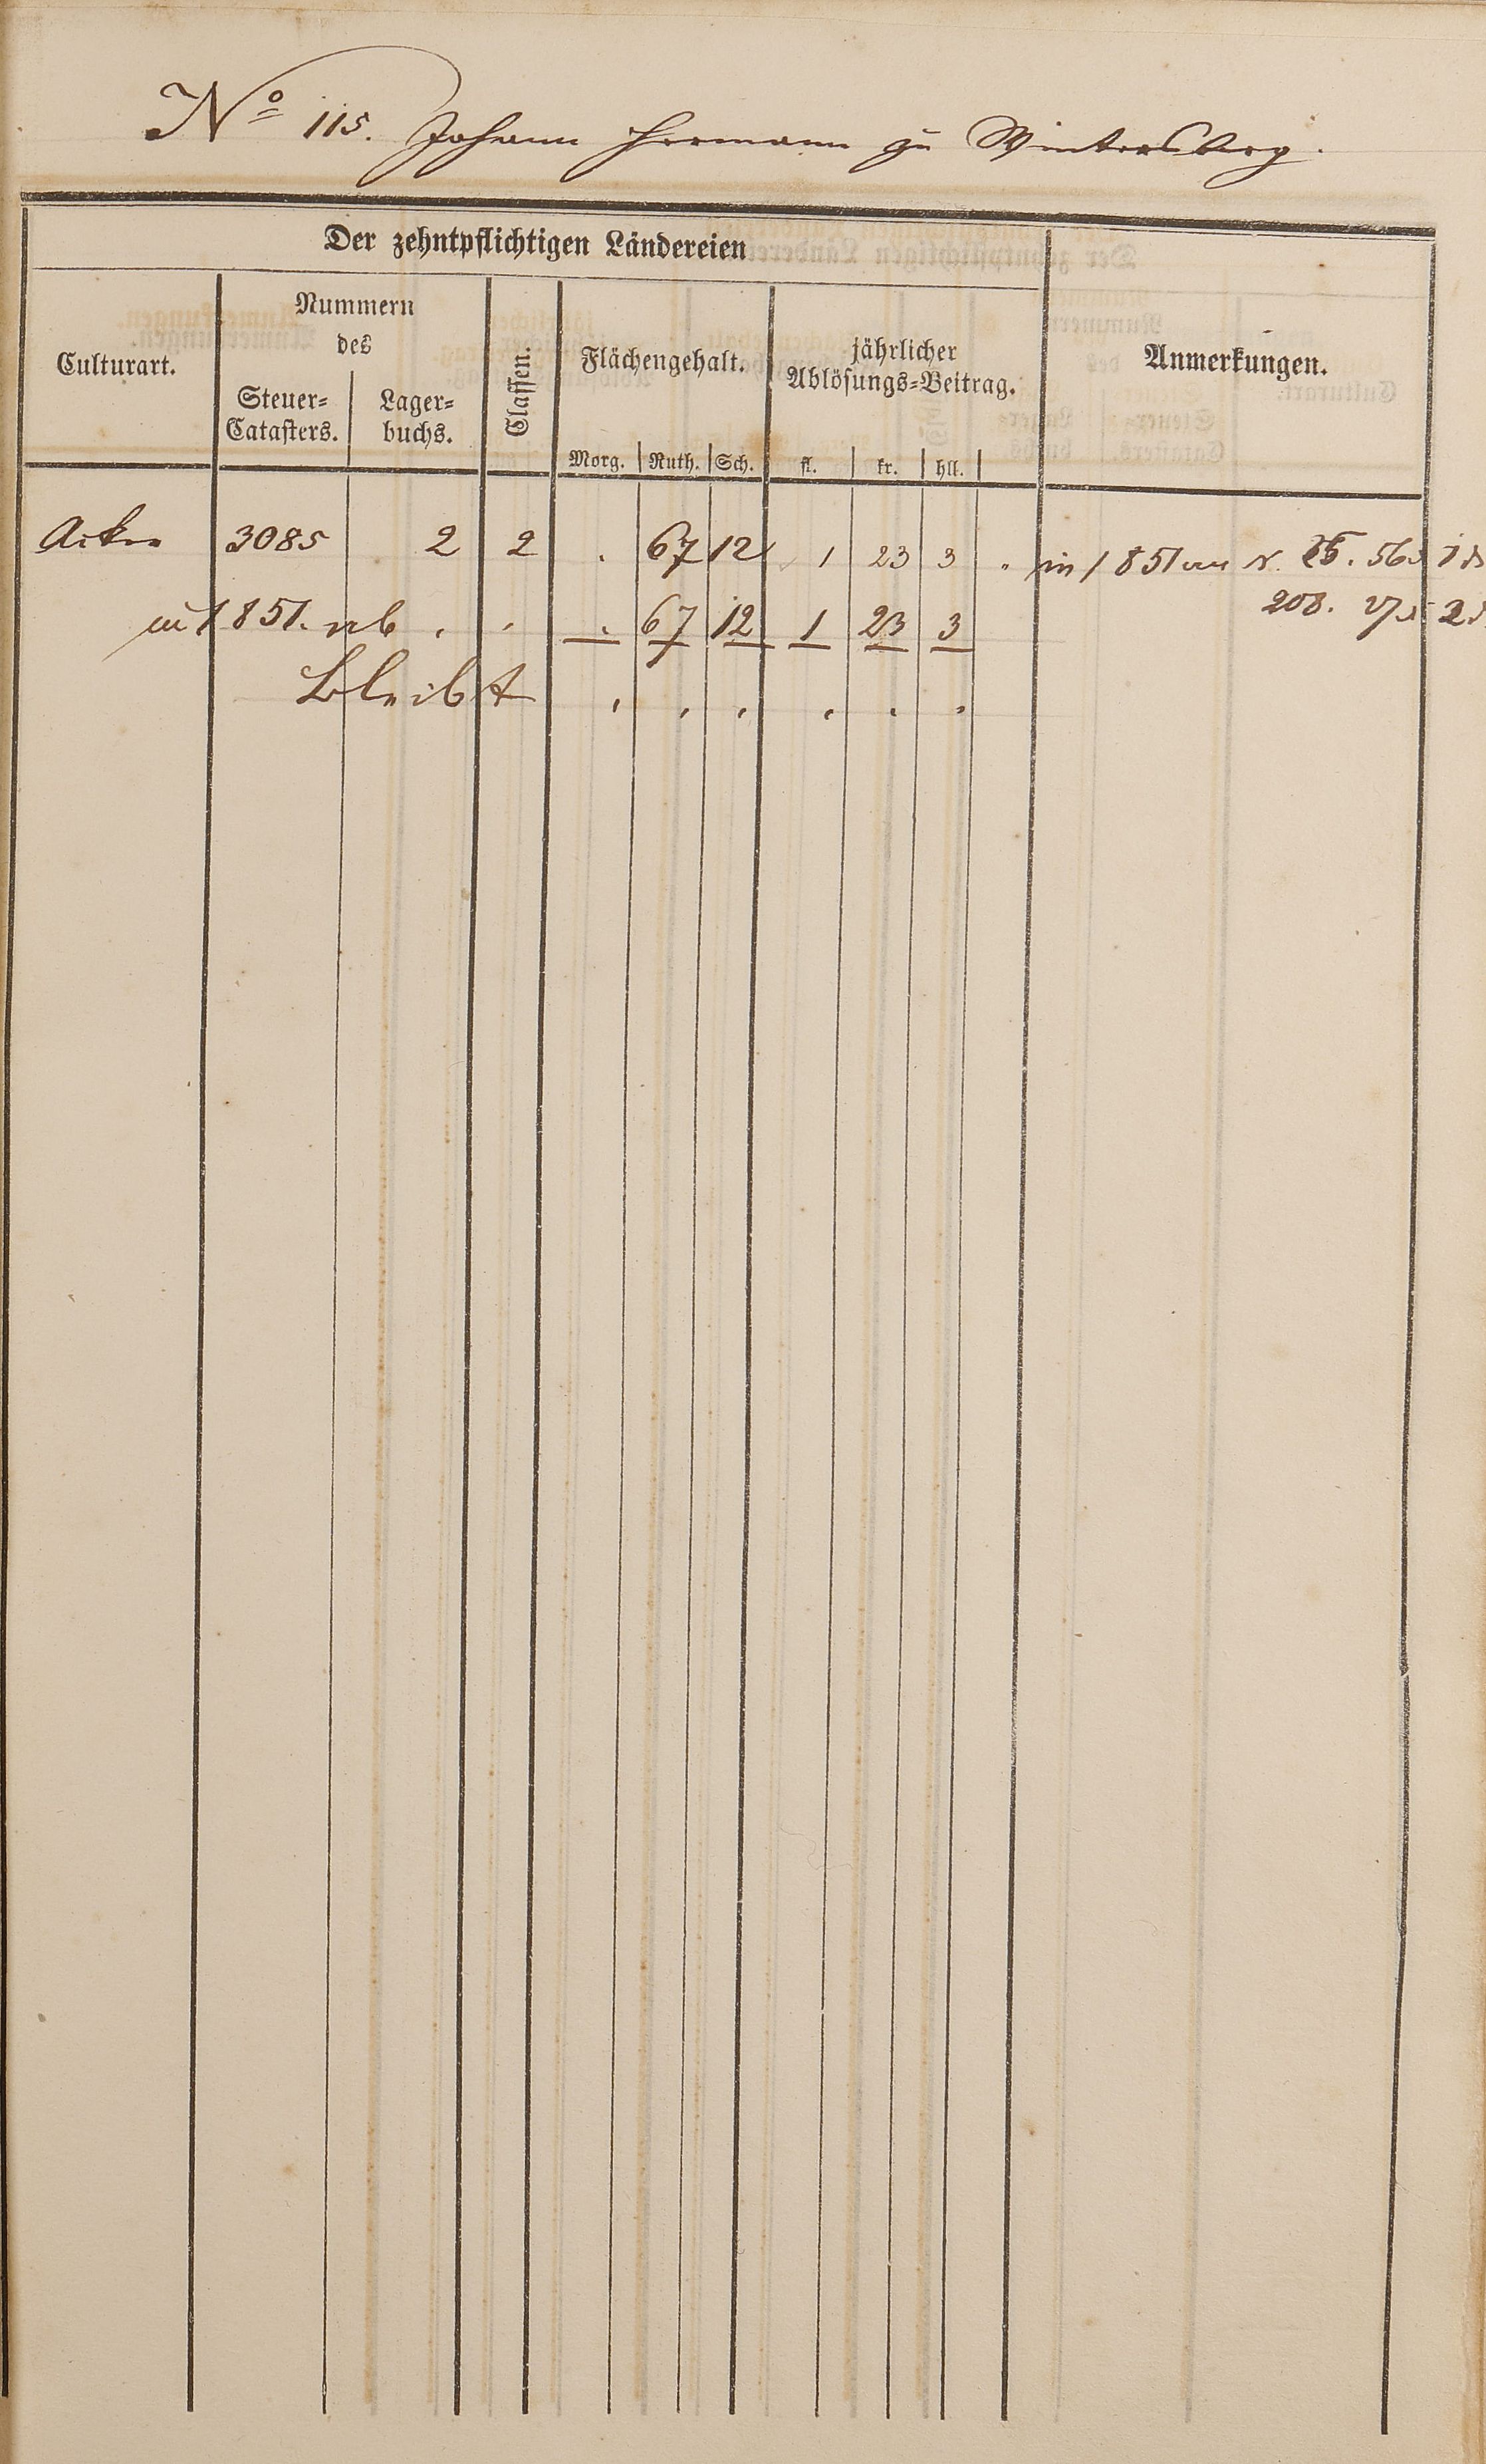 No 115. Johann Hermann zu Wintersberg.
Der zehntpflichtigen Ländereien
Culturart.
Nummern
des
Steuer-
Catasters.
Lager-
buchs.
Classen.
Flächengehalt.
Morg. Ruth. Sch.
jährlicher
Ablösungs-Beitrag.
fl. kr. hll.
Anmerkungen.
Acker 3085 2 2 . 67 12 1 23 3 . in 1851 an N. 56
208. 2
in 1851. ab . . . 67 12 1 23 3
Bleibt , , , , . .